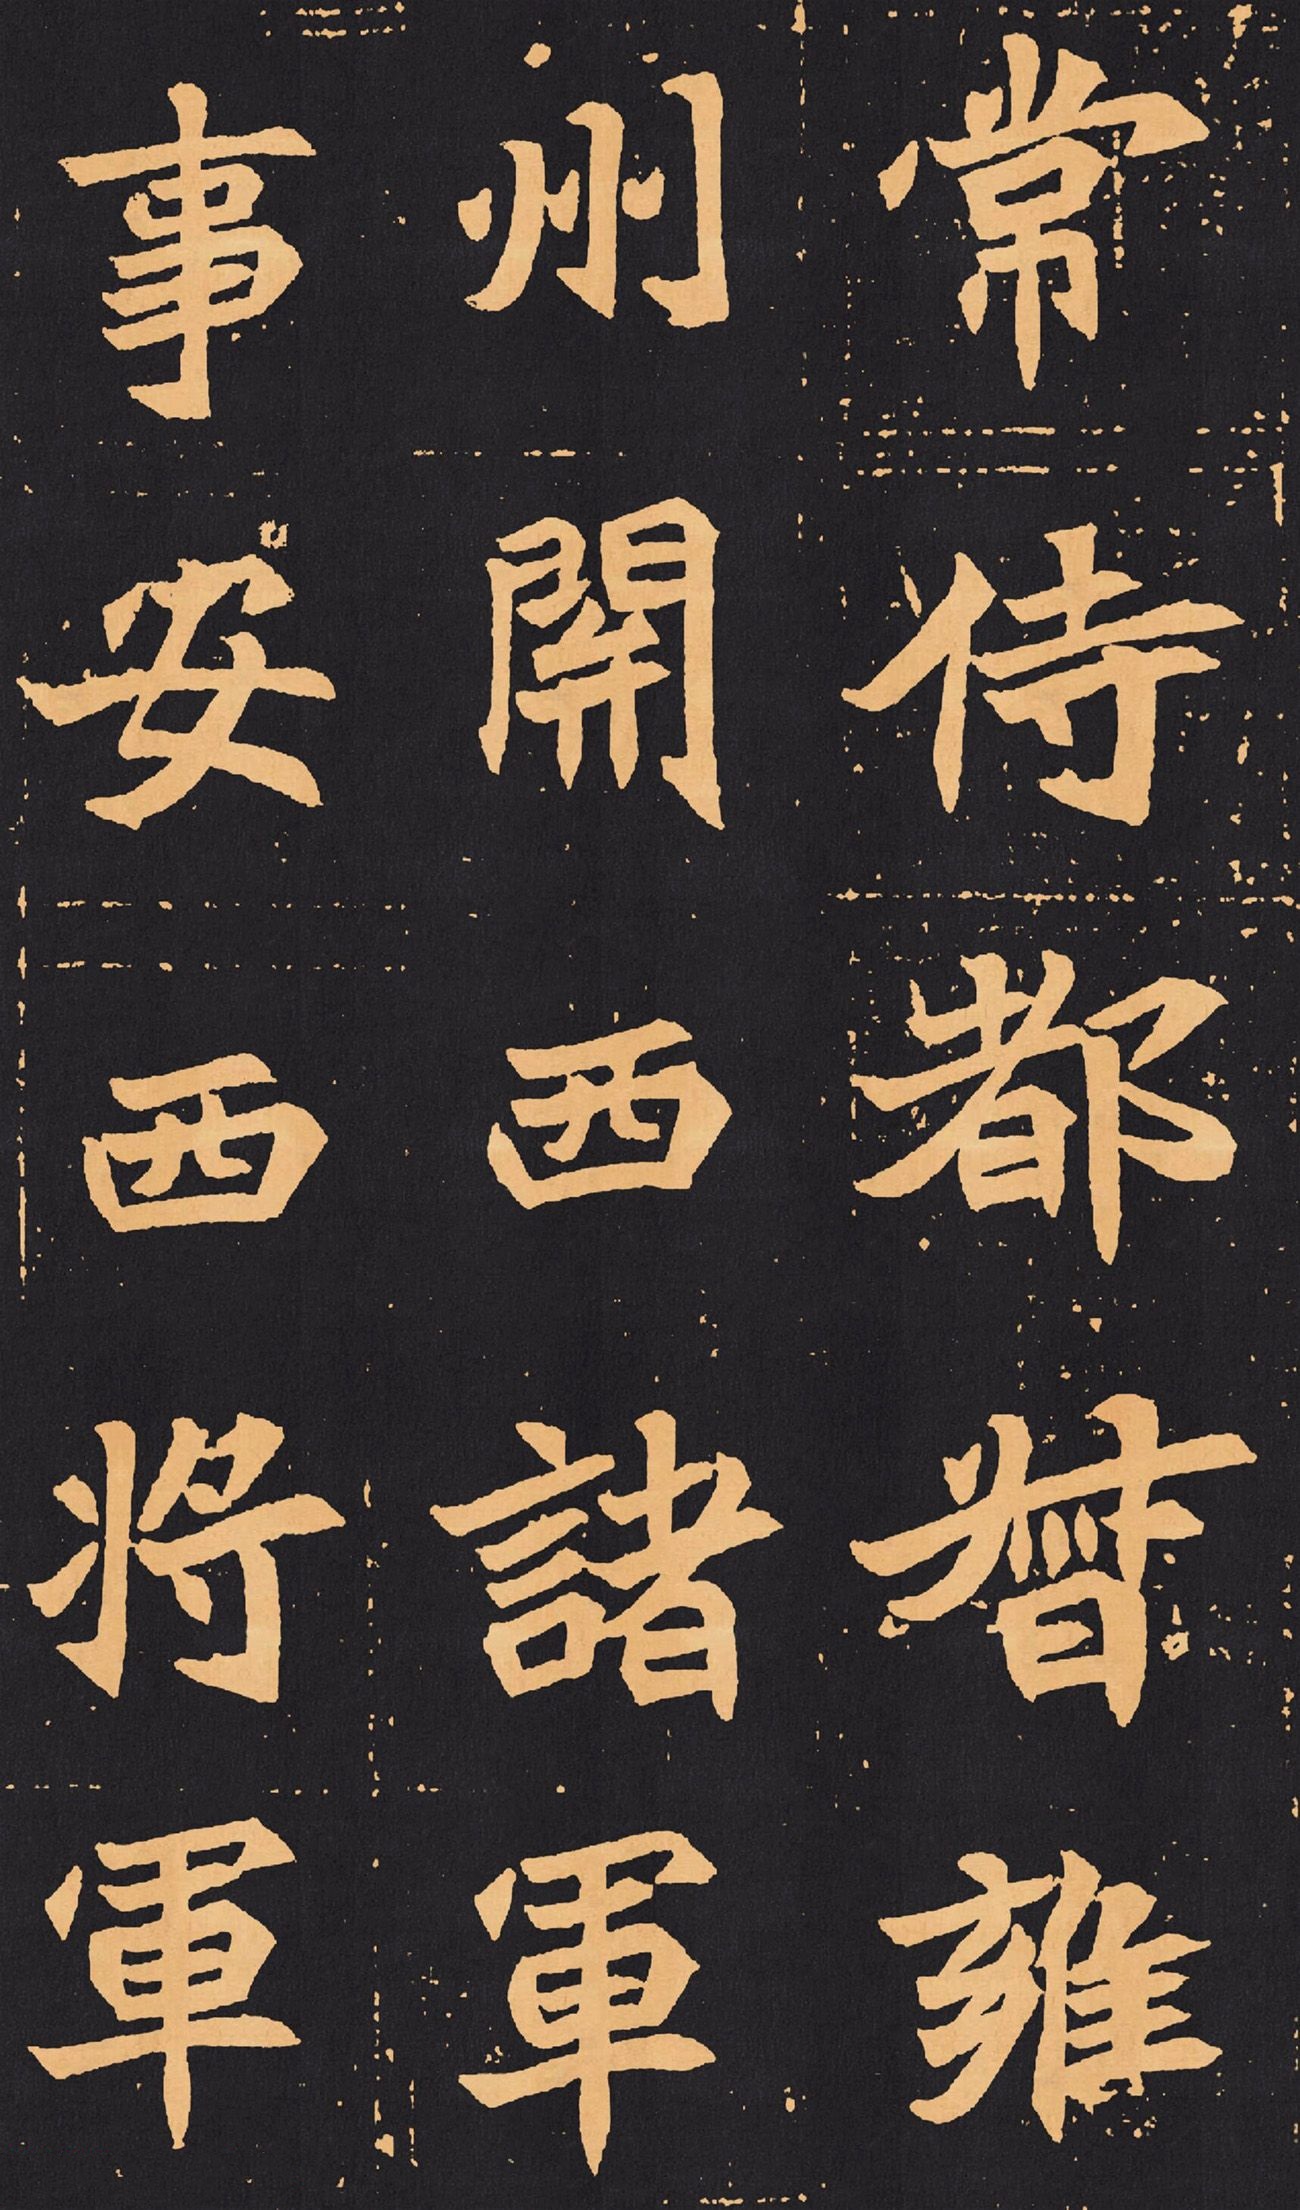 常侍都督雍
州關西諸軍
事安西將軍